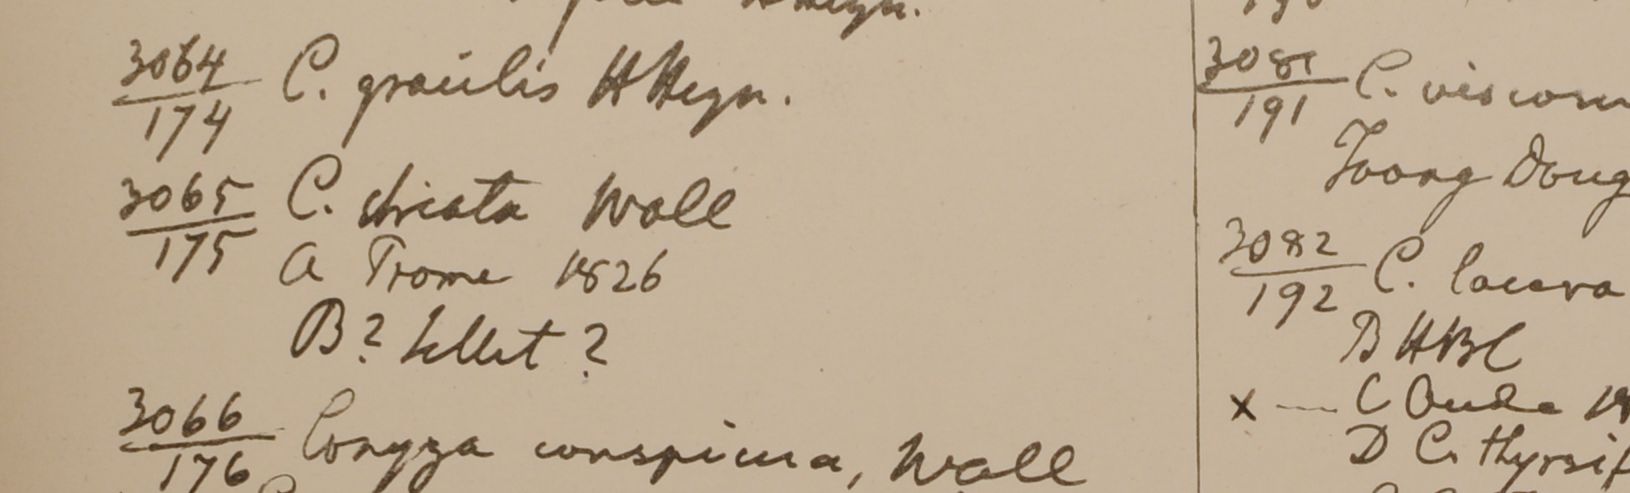 H Heyn.
3064
174 C. gracilis H Heyn.
3065
175 C. striata Wall
a Prome 1826
B? Sillet?
3066
176 Conyza conspicua, Wall
3081
191 C. viscosu
Toong Doug
3082
192 C. lacera
B HBC
x — C Oude 18
D C. thyrsif